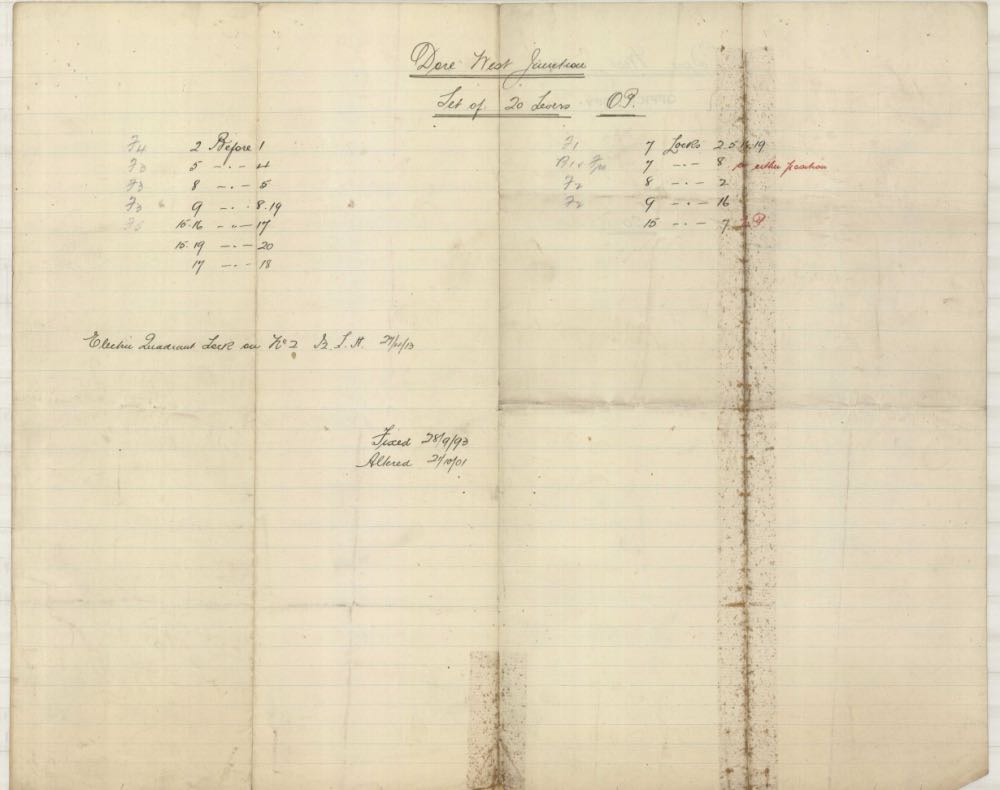 Dore West Junction
Set of 20 Levers O.P.
F4 2 Before 1
F3 5 -·- 4
F3 8 -·- 5
F3 9 -·- 8.19
F5 15.16 -·- 17
15.19 -·- 20
17 -·- 18
F1 7 Locks 2.5.16.19
7 -·- 8 in either position
F2 8 -·- 2
F2 9 -·- 16
15 -·- 7
Electric Quadrant Lock on No 2
Fixed 28/9/93
Altered 27/10/01